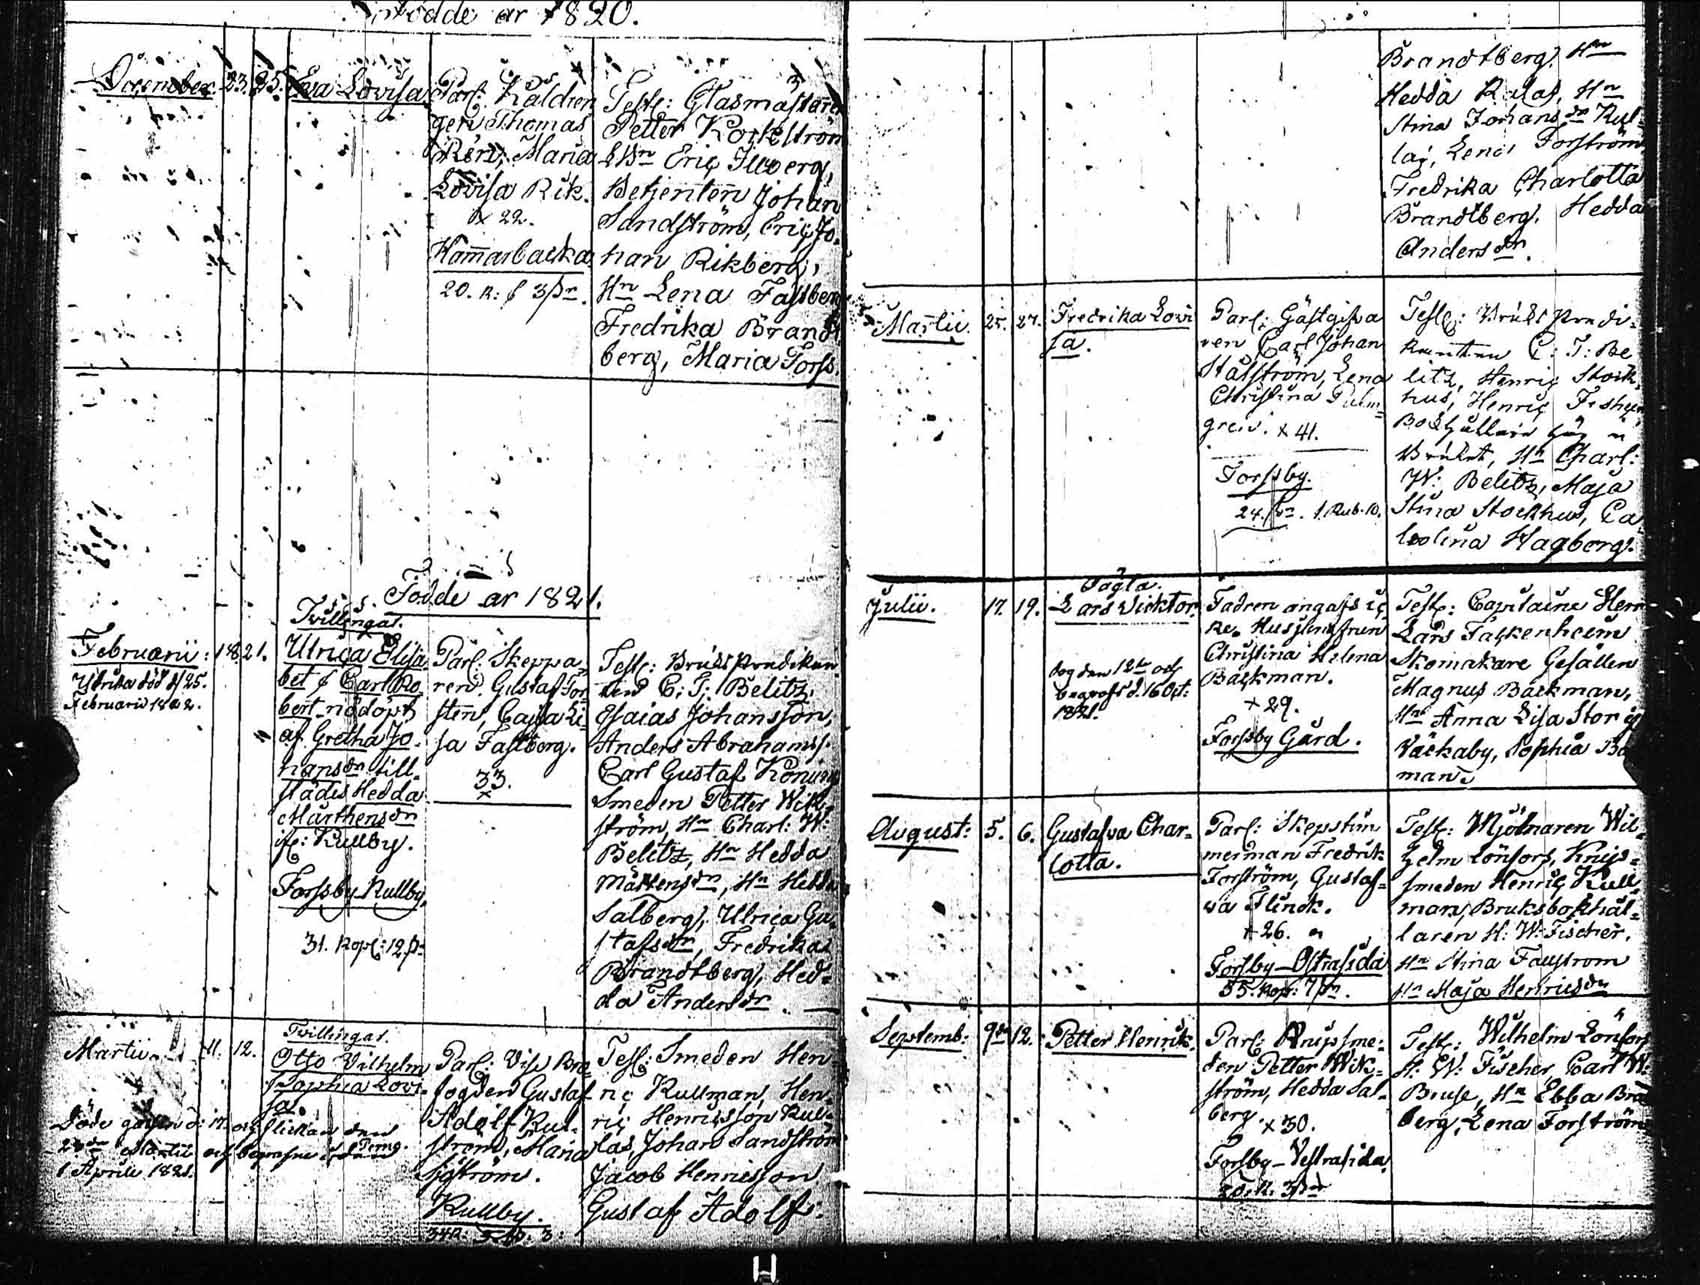 Födde år 1820.
December. 23. 25. Eva Lovisa
Par:
gen Thomas
Maria
Lovisa Rik.
x 22.
Kammarbacka
20. R: & 3 Sr.
Test: Glasmästare
Petter
Eric
Betjenten Johan
Sandström, Eric Jo-
han Rikberg,
Hn Lena Fastberg
Fredrika Brandt
berg, Maria Forss.
Födde år 1821.
Februarii: 18. 21.
Ulrika död d. 25.
Februarii
Tvillingar.
Ulrica Elisa
bet & Carl Ro
bert nödöpt
af Gretha Jo-
hansdr till-
städes Hedda
Märthensdr
ifr: Kullby.
Forssby Kullby.
31. Kopr: 12 S.
Par: Skeppa
ren Gustaf For
stén, Cajsa Li-
sa Fastberg.
33.
x
Test: Bruks Predikan
ten C: J: Belitz,
Esaias Johansson,
Anders Abrahamss.
Carl Gustaf
Smeden Petter Wik
ström, Hn Charl: W:
Belitz, Hn Hedda
Mårtensdr, Hn Hedda
Salberg, Ulrica Gu-
stafsdr, Fredrika
Brandtberg, Hed-
da Andersdr.
Martii 11. 12.
Tvillingar.
Otto Vilhelm
Sophia Lovi-
sa.
Döde gossen d: 17. och flickan den
Martii och begrafne
1 Aprill 1821.
Par:
fogden Gustaf
Adolf Kull-
ström, Maria
Sjöström.
Kullby.
Test: Smeden Hen
ric Kullman, Hen-
ric Henricsson Kul-
las Johan Sandström
Jacob Henricsson
Gustaf Adolf
Brandtberg, Hn
Hedda Kulas, Hn
Stina Johansdr Kul-
las, Lena Forström
Fredrika Charlotta
Brandtberg, Hedda
Andersdr.
Martii. 25. 27. Fredrika Lovi
sa.
Par: Gästgifva
ren Carl Johan
Stålström, Lena
Christina Palm-
gren. x 41.
Forssby.
24. 1. Rub. 10.
Test: Bruks Predi-
kanten C: J: Be
litz, Henric Stock
hus, Henric Fischer
Bokhållare
Bruket, Hn Charl:
W: Belitz, Maja
Stina Stockhus, Ca
rolina Hagberg.
Julii. 17. 19.
Oägta.
Lars Vicktor.
Dog den 12te och
begrofs d. 16 Oct:
1821.
Fadren angafs ic
ke. Husjungfrun
Christina Helena
Backman.
x 29.
Forssby Gård.
Test: Capitaine Herr
Lars Falkenheim
Skomakare Gesällen
Magnus Backman,
Hn Anna Lisa Stor
Väckaby, Sophia Bac
man.
August: 5. 6. Gustafva Char-
lotta.
Par: Skepstim
merman Fredrik
Forström, Gustaf-
va Flinck.
x 26.
Forssby - Östrasida
35. Kop: 7 S.
Test: Mjölnaren Wil-
helm Lönfors, Knips-
smeden Henric Kull
man, Bruksbokhål-
laren H: W: Fischer,
Hn Stina Fallström
Hn Maja Henricsdr
Septemb: 9de 12. Petter Henrik.
Par: Knipsme-
den Petter Wik-
ström, Hedda Sal-
berg x 30.
Forssby - Vestrasida
20. R. 3 Sr
Test: Wilhelm Lönfors
H: W: Fischer, Carl W:
Bruse, Hn Ebba Brand
berg, Lena Forström
H